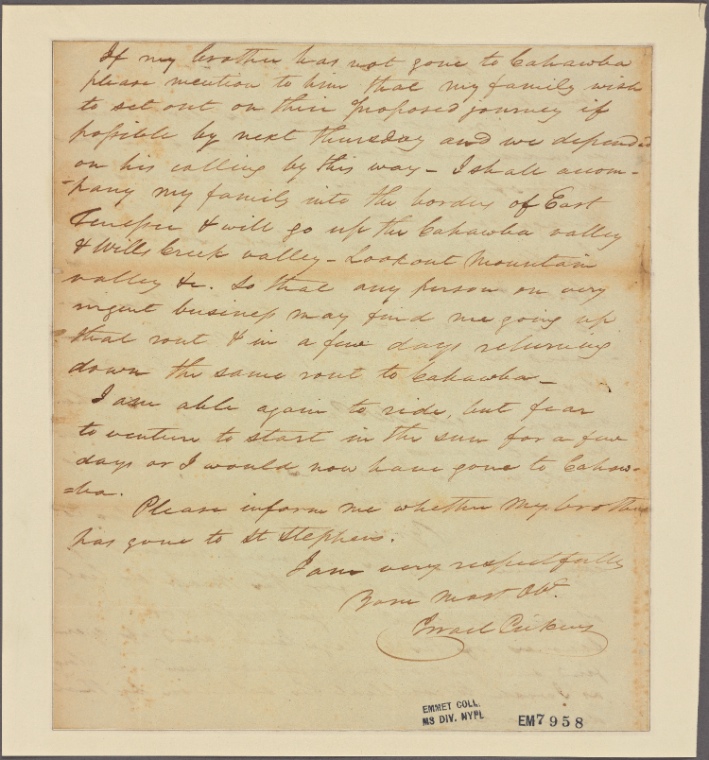 If my brother has not gone to Cahawba
please mention to him that my family wish
to set out on their proposed journey if
possible by next thursday and we depended
on his calling by this way - I shall accom-
-pany my family into the borders of East
Tenessee & will go up the Cahawba valley
& Wills Creek valley - Lookout Mountain
valley &c. So that any person on very
urgent business may find me going up
that rout & in a few days returning
down the same rout to Cahawba -
I am able again to ride, but fear
to venture to start in the sun for a few
days or I would now have gone to Cahaw-
=ba.
Please inform me whether My brother
has gone to St Stephens.
I am very respectfully
Your Most Obt.
Israel Pickens
EMMET COLL.
MS DIV. NYPL
EM7958